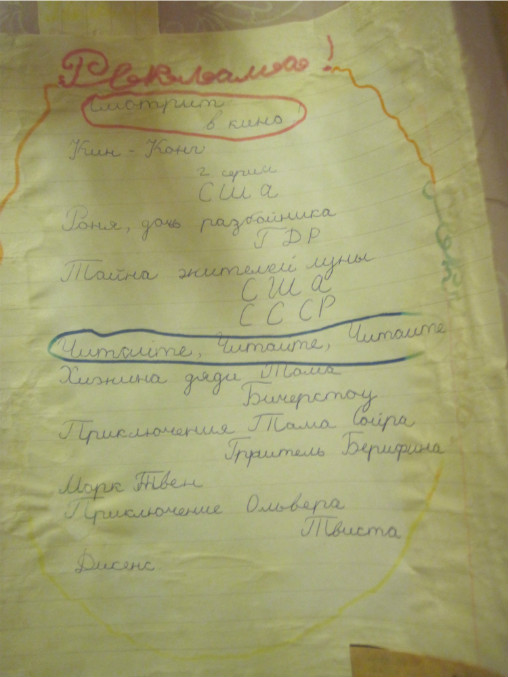 Реклама!
Смотрит
в кино
Кин-Конг
2 серии
США
Роня, дочь разбойника
ГДР
Тайна жителей луны
США
СССР
Читайте, Читайте, Читайте
Хижина дяди Тома
Бичерстоу
Приключения Тома Сойра
Марк Твен
Приключение Ольвера
Твиста
Дикенс